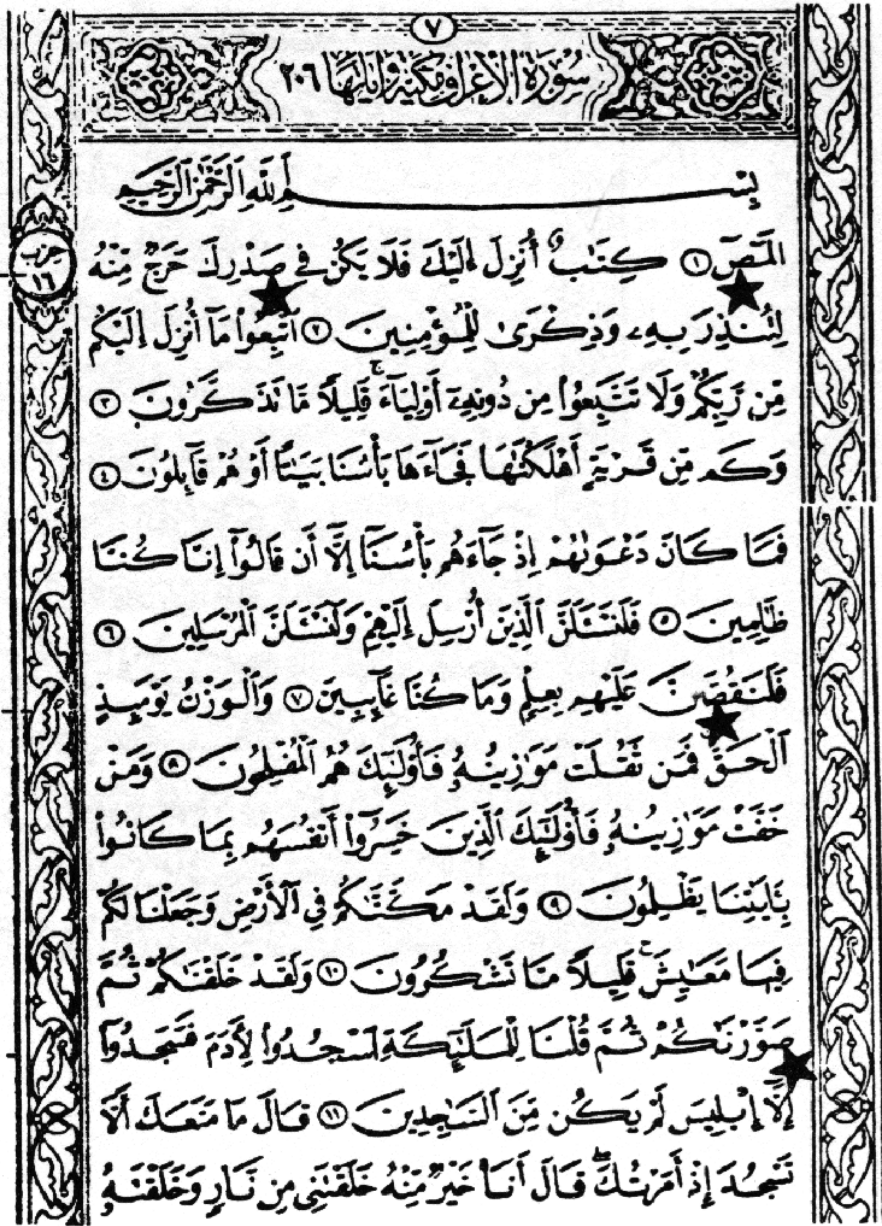 ٧
سُورَةُ الْأَعْرَافِ مَكِّيَّة وَآيَاتُهَا ٢٠٦
بِسْمِ اللَّهِ الرَّحْمَٰنِ الرَّحِيمِ
الٓمٓصٓ ١ كِتَٰبٌ أُنزِلَ إِلَيْكَ فَلَا يَكُن فِي صَدْرِكَ حَرَجٌ مِّنْهُ
حزب
١٦
لِتُنذِرَ بِهِۦ وَذِكْرَىٰ لِلْمُؤْمِنِينَ ٢ ٱتَّبِعُوا۟ مَآ أُنزِلَ إِلَيْكُم
مِّن رَّبِّكُمْ وَلَا تَتَّبِعُوا۟ مِن دُونِهِۦٓ أَوْلِيَآءَ ۚ قَلِيلًا مَّا تَذَكَّرُونَ ٣
وَكَم مِّن قَرْيَةٍ أَهْلَكْنَٰهَا فَجَآءَهَا بَأْسُنَا بَيَٰتًا أَوْ هُمْ قَآئِلُونَ ٤
فَمَا كَانَ دَعْوَىٰهُمْ إِذْ جَآءَهُم بَأْسُنَآ إِلَّآ أَن قَالُوٓا۟ إِنَّا كُنَّا
ظَٰلِمِينَ ٥ فَلَنَسْـَٔلَنَّ ٱلَّذِينَ أُرْسِلَ إِلَيْهِمْ وَلَنَسْـَٔلَنَّ ٱلْمُرْسَلِينَ ٦
فَلَنَقُصَّنَّ عَلَيْهِم بِعِلْمٍ وَمَا كُنَّا غَآئِبِينَ ٧ وَٱلْوَزْنُ يَوْمَئِذٍ
ٱلْحَقُّ فَمَن ثَقُلَتْ مَوَٰزِينُهُۥ فَأُو۟لَٰٓئِكَ هُمُ ٱلْمُفْلِحُونَ ٨ وَمَنْ
خَفَّتْ مَوَٰزِينُهُۥ فَأُو۟لَٰٓئِكَ ٱلَّذِينَ خَسِرُوٓا۟ أَنفُسَهُم بِمَا كَانُوا۟
بِـَٔايَٰتِنَا يَظْلِمُونَ ٩ وَلَقَدْ مَكَّنَّٰكُمْ فِي ٱلْأَرْضِ وَجَعَلْنَا لَكُمْ
فِيهَا مَعَٰيِشَ ۗ قَلِيلًا مَّا تَشْكُرُونَ ١٠ وَلَقَدْ خَلَقْنَٰكُمْ ثُمَّ
صَوَّرْنَٰكُمْ ثُمَّ قُلْنَا لِلْمَلَٰٓئِكَةِ ٱسْجُدُوا۟ لِـَٔادَمَ فَسَجَدُوٓا۟
إِلَّآ إِبْلِيسَ لَمْ يَكُن مِّنَ ٱلسَّٰجِدِينَ ١١ قَالَ مَا مَنَعَكَ أَلَّا
تَسْجُدَ إِذْ أَمَرْتُكَ ۖ قَالَ أَنَا۠ خَيْرٌ مِّنْهُ خَلَقْتَنِي مِن نَّارٍ وَخَلَقْتَهُۥ